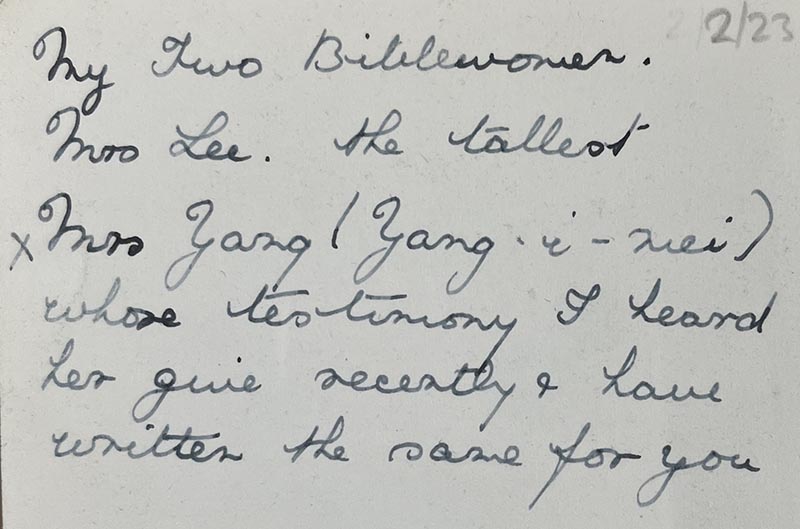 2/23
My Two Biblewomen.
Mrs Lee. the tallest
x Mrs Yang (Yang·i-mei)
whose testimony I heard
her give recently & have
written the same for you